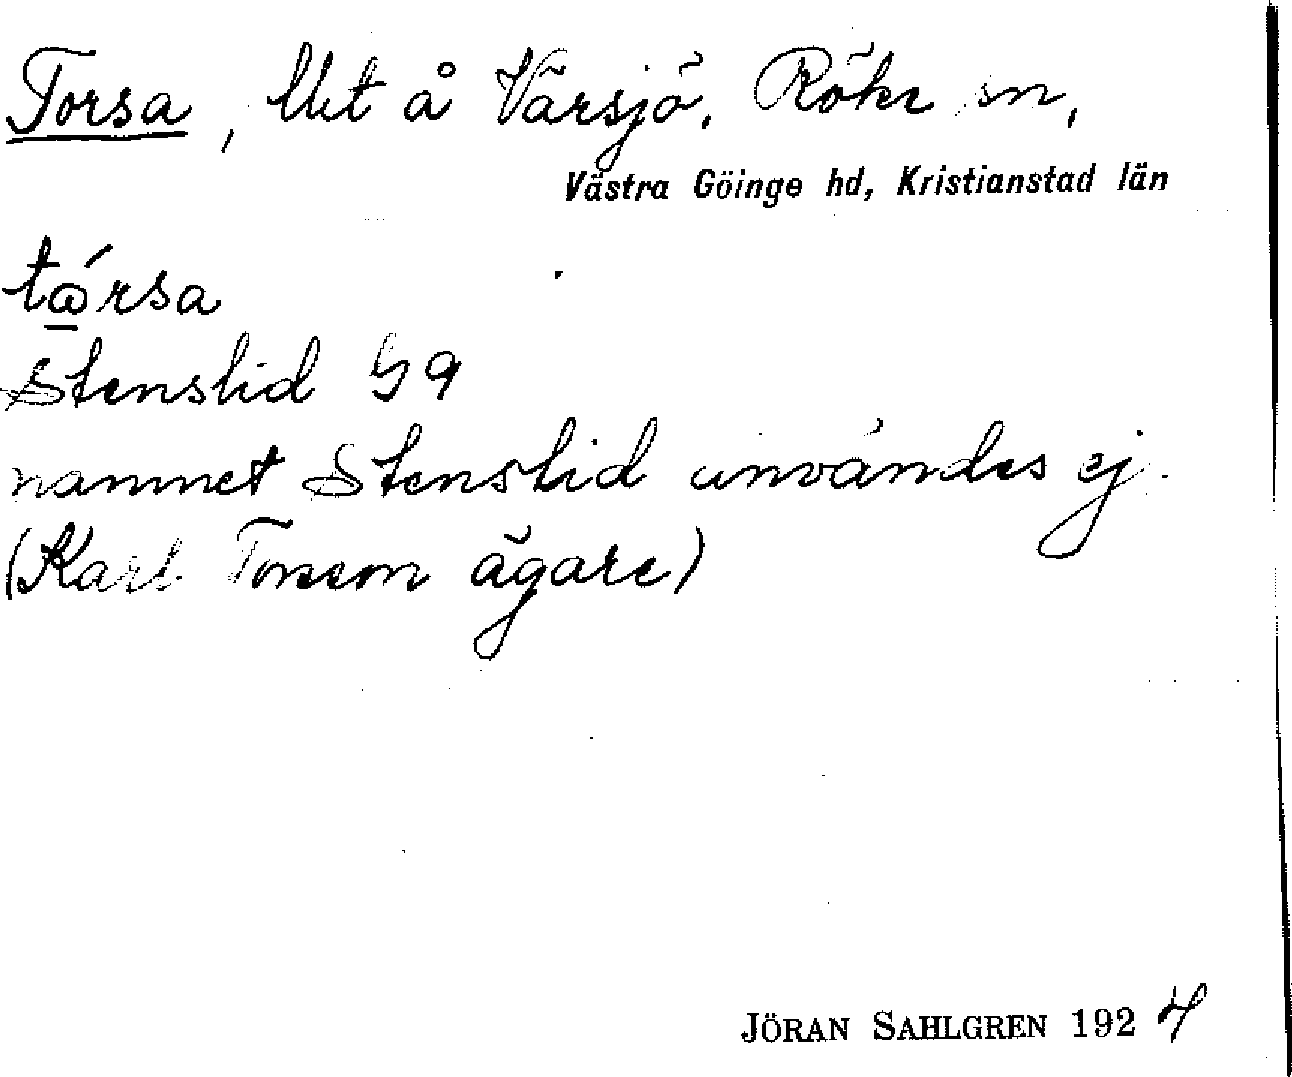 Torsa, Utt å Värsjö, Röke sn,
Västra Göinge hd, Kristianstad län
tårsa
Stenslid
namnet Stenslid användes ej.
(Karl ägare)
JÖRAN SAHLGREN 1924